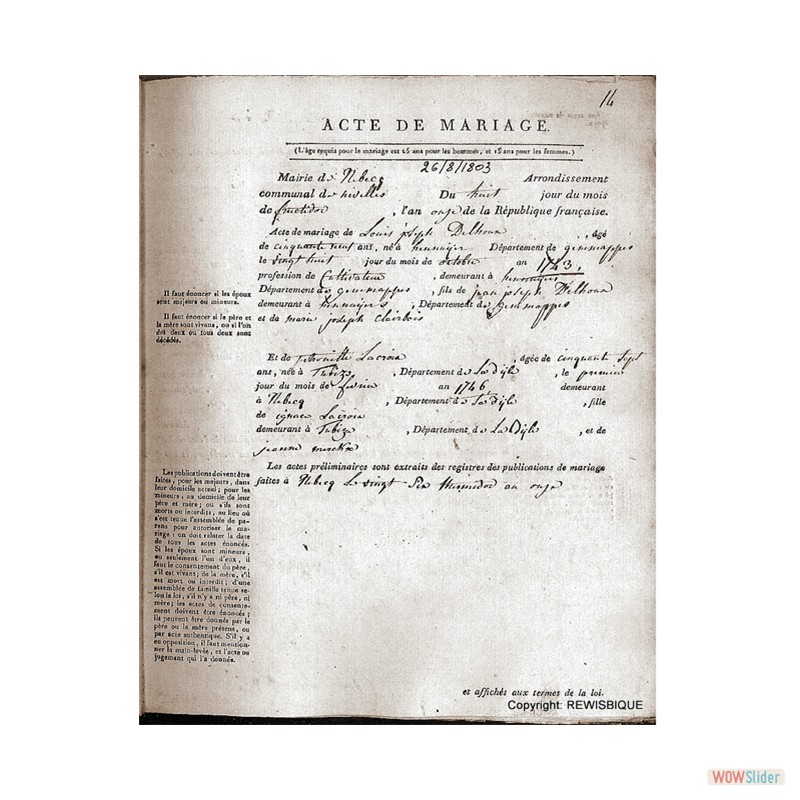 14
ACTE DE MARIAGE.
(L'âge requis pour le mariage est 15 ans pour les hommes, et 15 ans pour les femmes.)
26/8/1803
Mairie de Rebecq Arrondissement
communal de nivelles Du huit jour du mois
de fructidor, l'an onze de la République française.
Acte de mariage de Louis joseph Delhoux, âgé
de cinquante neuf ans, né à hennuyer Département de gemmappes
le vingt huit jour du mois de octobre an 1743,
profession de Cultivateur, demeurant à hennuyer
Département de gemmappes, fils de jean joseph Delhoux
demeurant à hennuyers, Département de gemmappes
et de marie joseph Clairbois
Il faut énoncer si les époux
sont majeurs ou mineurs.
Il faut énoncer si le père et
la mère sont vivans, ou si l'un
des deux ou tous deux sont
décédés.
Et de petronille Lacroix, âgée de cinquante sept
ans, née à Tubize, Département de La dyle, le premier
jour du mois de fevrier an 1746 demeurant
à Rebecq, Département de La dyle, fille
de ignace Lacroix
demeurant à Tubize, Département de La Dyle, et de
jeanne
Les actes préliminaires sont extraits des registres des publications de mariage
faites à Rebecq Le vingt Six thermidor an onze
Les publications doivent être
faites, pour les majeurs, dans
leur domicile actuel; pour les
mineurs, au domicile de leur
père et mère; ou s'ils sont
morts ou interdits, au lieu où
s'est tenue l'assemblée de pa-
rens pour autoriser le ma-
riage: on doit relater la date
de tous les actes énoncés.
Si les époux sont mineurs,
ou seulement l'un d'eux, il
faut le consentement du père,
s'il est vivant; de la mère, s'il
est mort ou interdit; d'une
assemblée de famille tenue se-
lon la loi, s'il n'y a ni père, ni
mère; les actes de consente-
ment doivent être énoncés;
ils peuvent être donnés par le
père ou la mère présens, ou
par acte authentique. S'il y a
eu opposition, il faut mention-
ner la main-levée, et l'acte ou
jugement qui l'a donnée.
et affichés aux termes de la loi.
Copyright: REWISBIQUE
WOWSlider